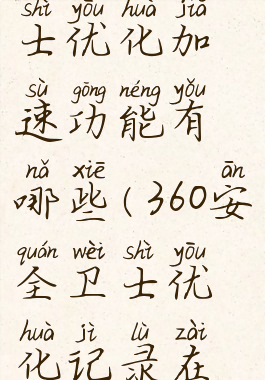 shì yōu huà jiā
士优化加
sù gōng néng yǒu
速功能有
nǎ xiē ān
哪些(360安
quán wèi shì yōu
全卫士优
huà jì lù zài
化记录在